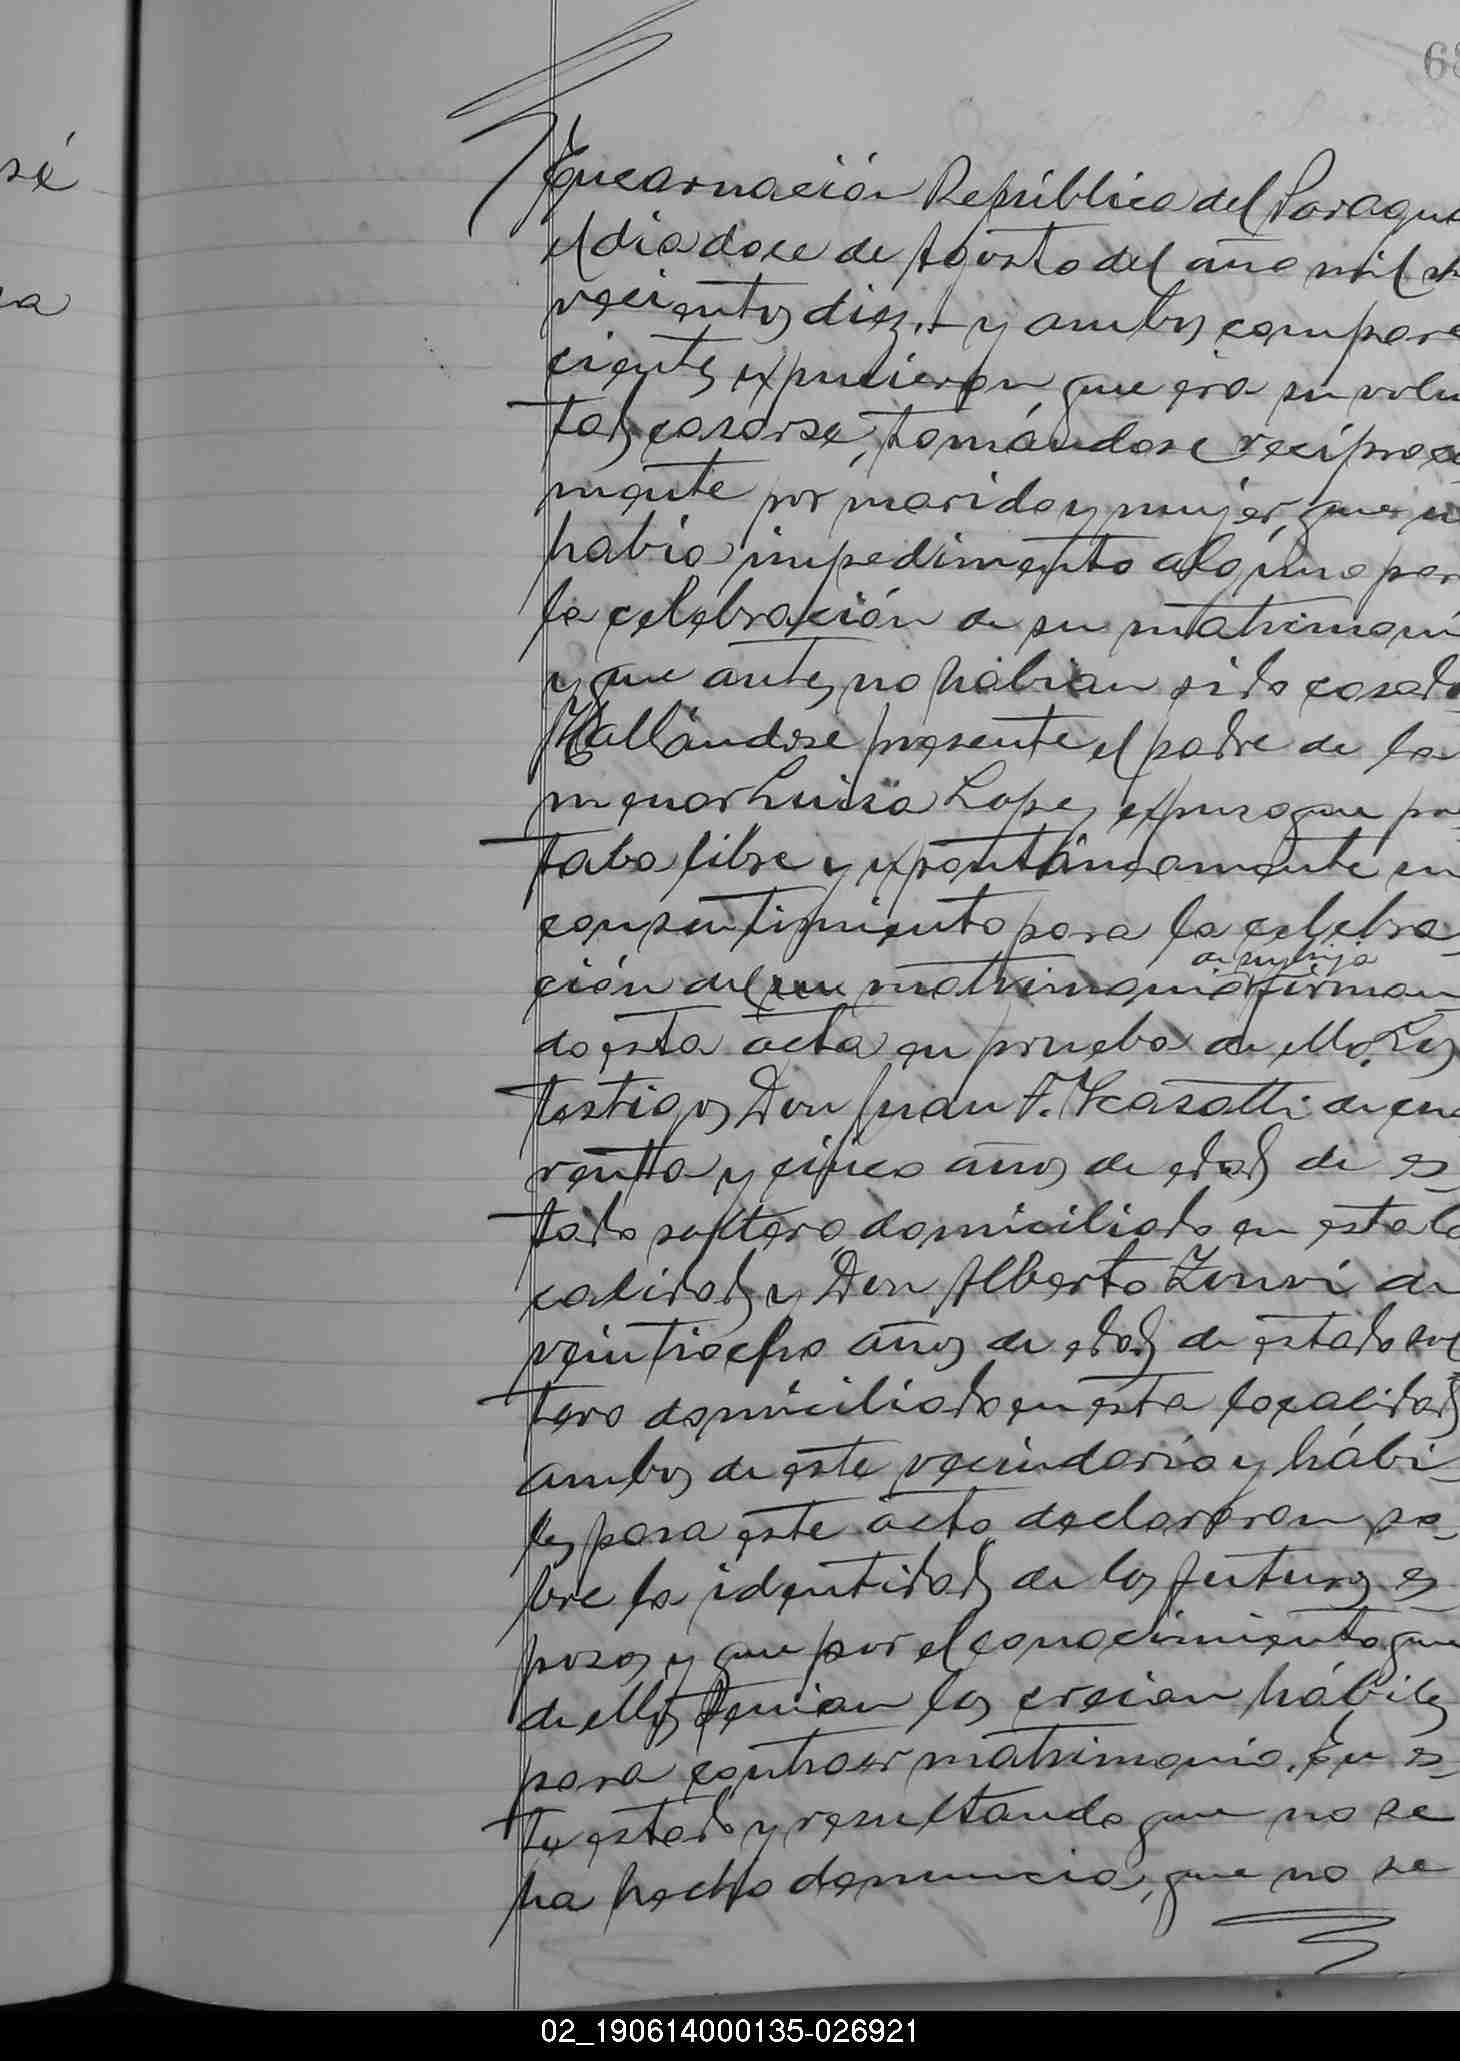 68
sé
Encarnación República del Paragua
el dia doce de Agosto del año mil no
vecientos diez.- y ambos compare
cientes expucieron que era su volun
tad casarse, tomándose reciproca
mente por marido y mujer, que no
habia impedimento alguno para
la celebración de su matrimoni
y que antes no habian sido casado
Hallándose presente el padre de la
menor Luisa Lopez expuso que pres
taba libre y expontáneamente su
consentimiento para la celebra
de su hija
ción del matrimonio firman
do esta acta en prueba de ello. Los
testigos Don Juan F. de cua
renta y cinco años de edad de es
tado soltero domiciliado en esta lo
calidad y Don Alberto de
veintiocho años de edad de estado sol
tero domiciliado en esta localidad
ambos de este vecindario y hábi
les para este acto declararon so
bre la identidad de los futuros es
posos y que por el conocimiento que
de ellos tenian los creian hábiles
para contraer matrimonio. En es
te estado y resultando que no se
ha hecho denuncia, que no se
02_190614000135-026921